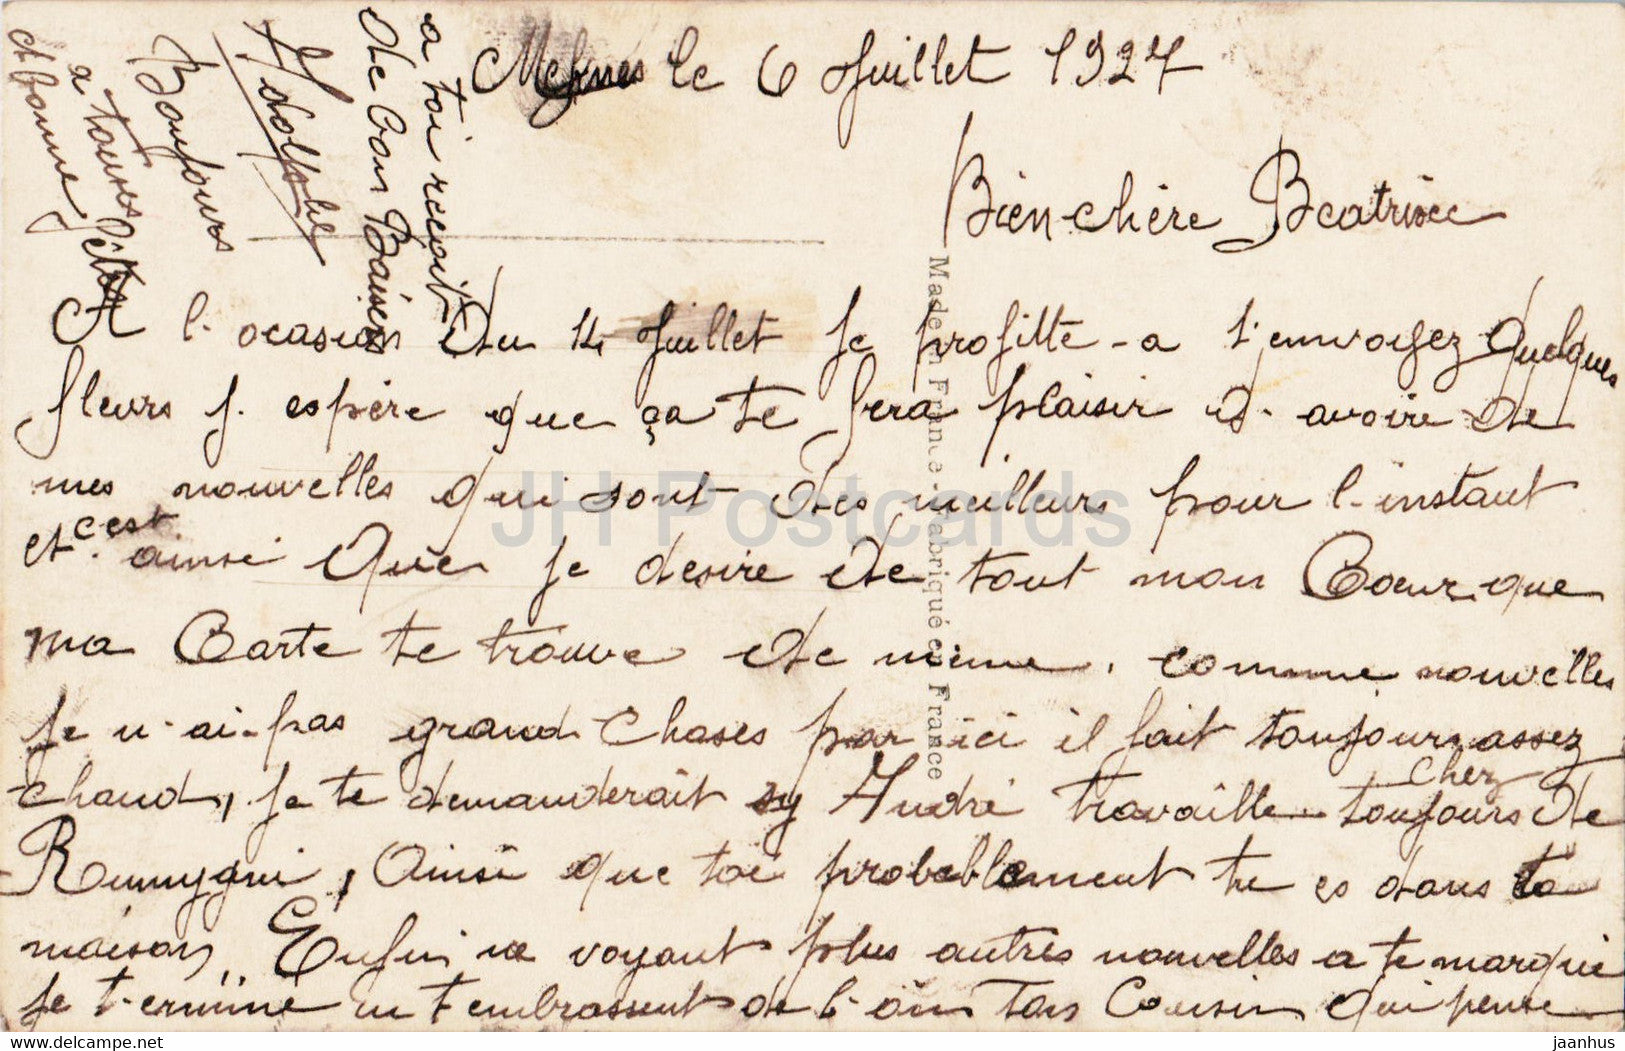 Meknes le 6 Juillet 1927
Bien-chère Beatrice
A l-ocasion du 14 Juillet Je profitte-a t'envoyez quelques
fleurs J. espère que ça te fera plaisir d-avoire de
mes nouvelles qui sont des meilleurs pour l-instant
et c'est ainsi que Je desire de tout mon Coeur que
ma Carte te trouve de même, comme nouvelles
Je n-ai-pas grand choses par ici il fait toujours assez
chaud, Je te demanderait sy André travaille toujours chez de
, Ainsi que toi probablement tu es dans ta
maison,, Enfin ne voyant plus autres nouvelles a te marqué
Je t-ermine en t embrassent de l-oin Ton Cousin qui pense
a toi reçoit
de bon Baisers
Adolphe
Bonjours
a toutes
et bonne fête
Made in France - Fabriqué en France
JH Postcards
delcampe.net
jaanhus